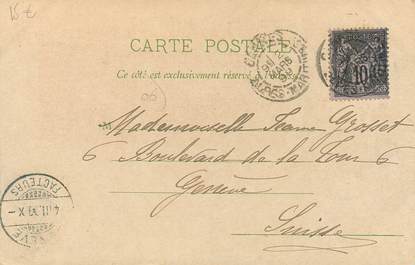 15 €
CARTE POSTALE
Ce côté est exclusivement réservé à l'adresse
10
8
M
Mademoiselle Jeanne Grosset
6 Boulevard de la Tour 6
Genève
Suisse
FACTEURS